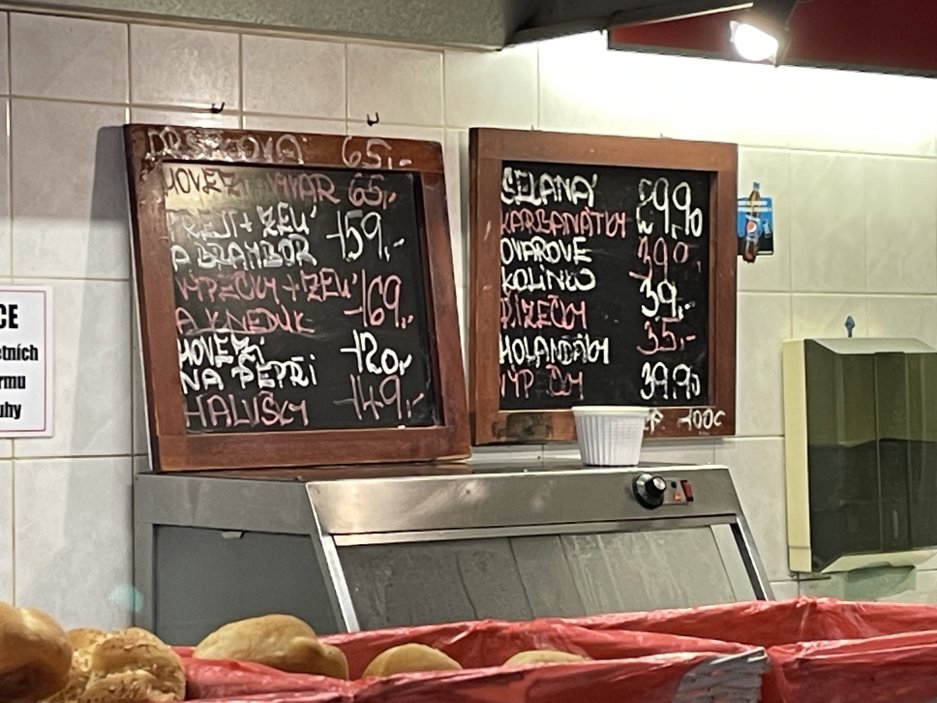 DRŠŤKOVÁ 65,-
HOVĚZÍ VÝVAR 65,-
PREJT + ZELÍ
A BRAMBOR 159,-
VÝPEČKY + ZELÍ
A KNEDLÍK 169,-
HOVĚZÍ
NA PEPŘI 120,-
HALUŠKY 149,-
SELANÁ 99,90
KARBANÁTKY
OVAROVÉ
KOLÍNKO 39,-
ŘÍZEČKY 35,-
HOLANDÁKY
39,90
100G
CE
etních
rmu
uhy